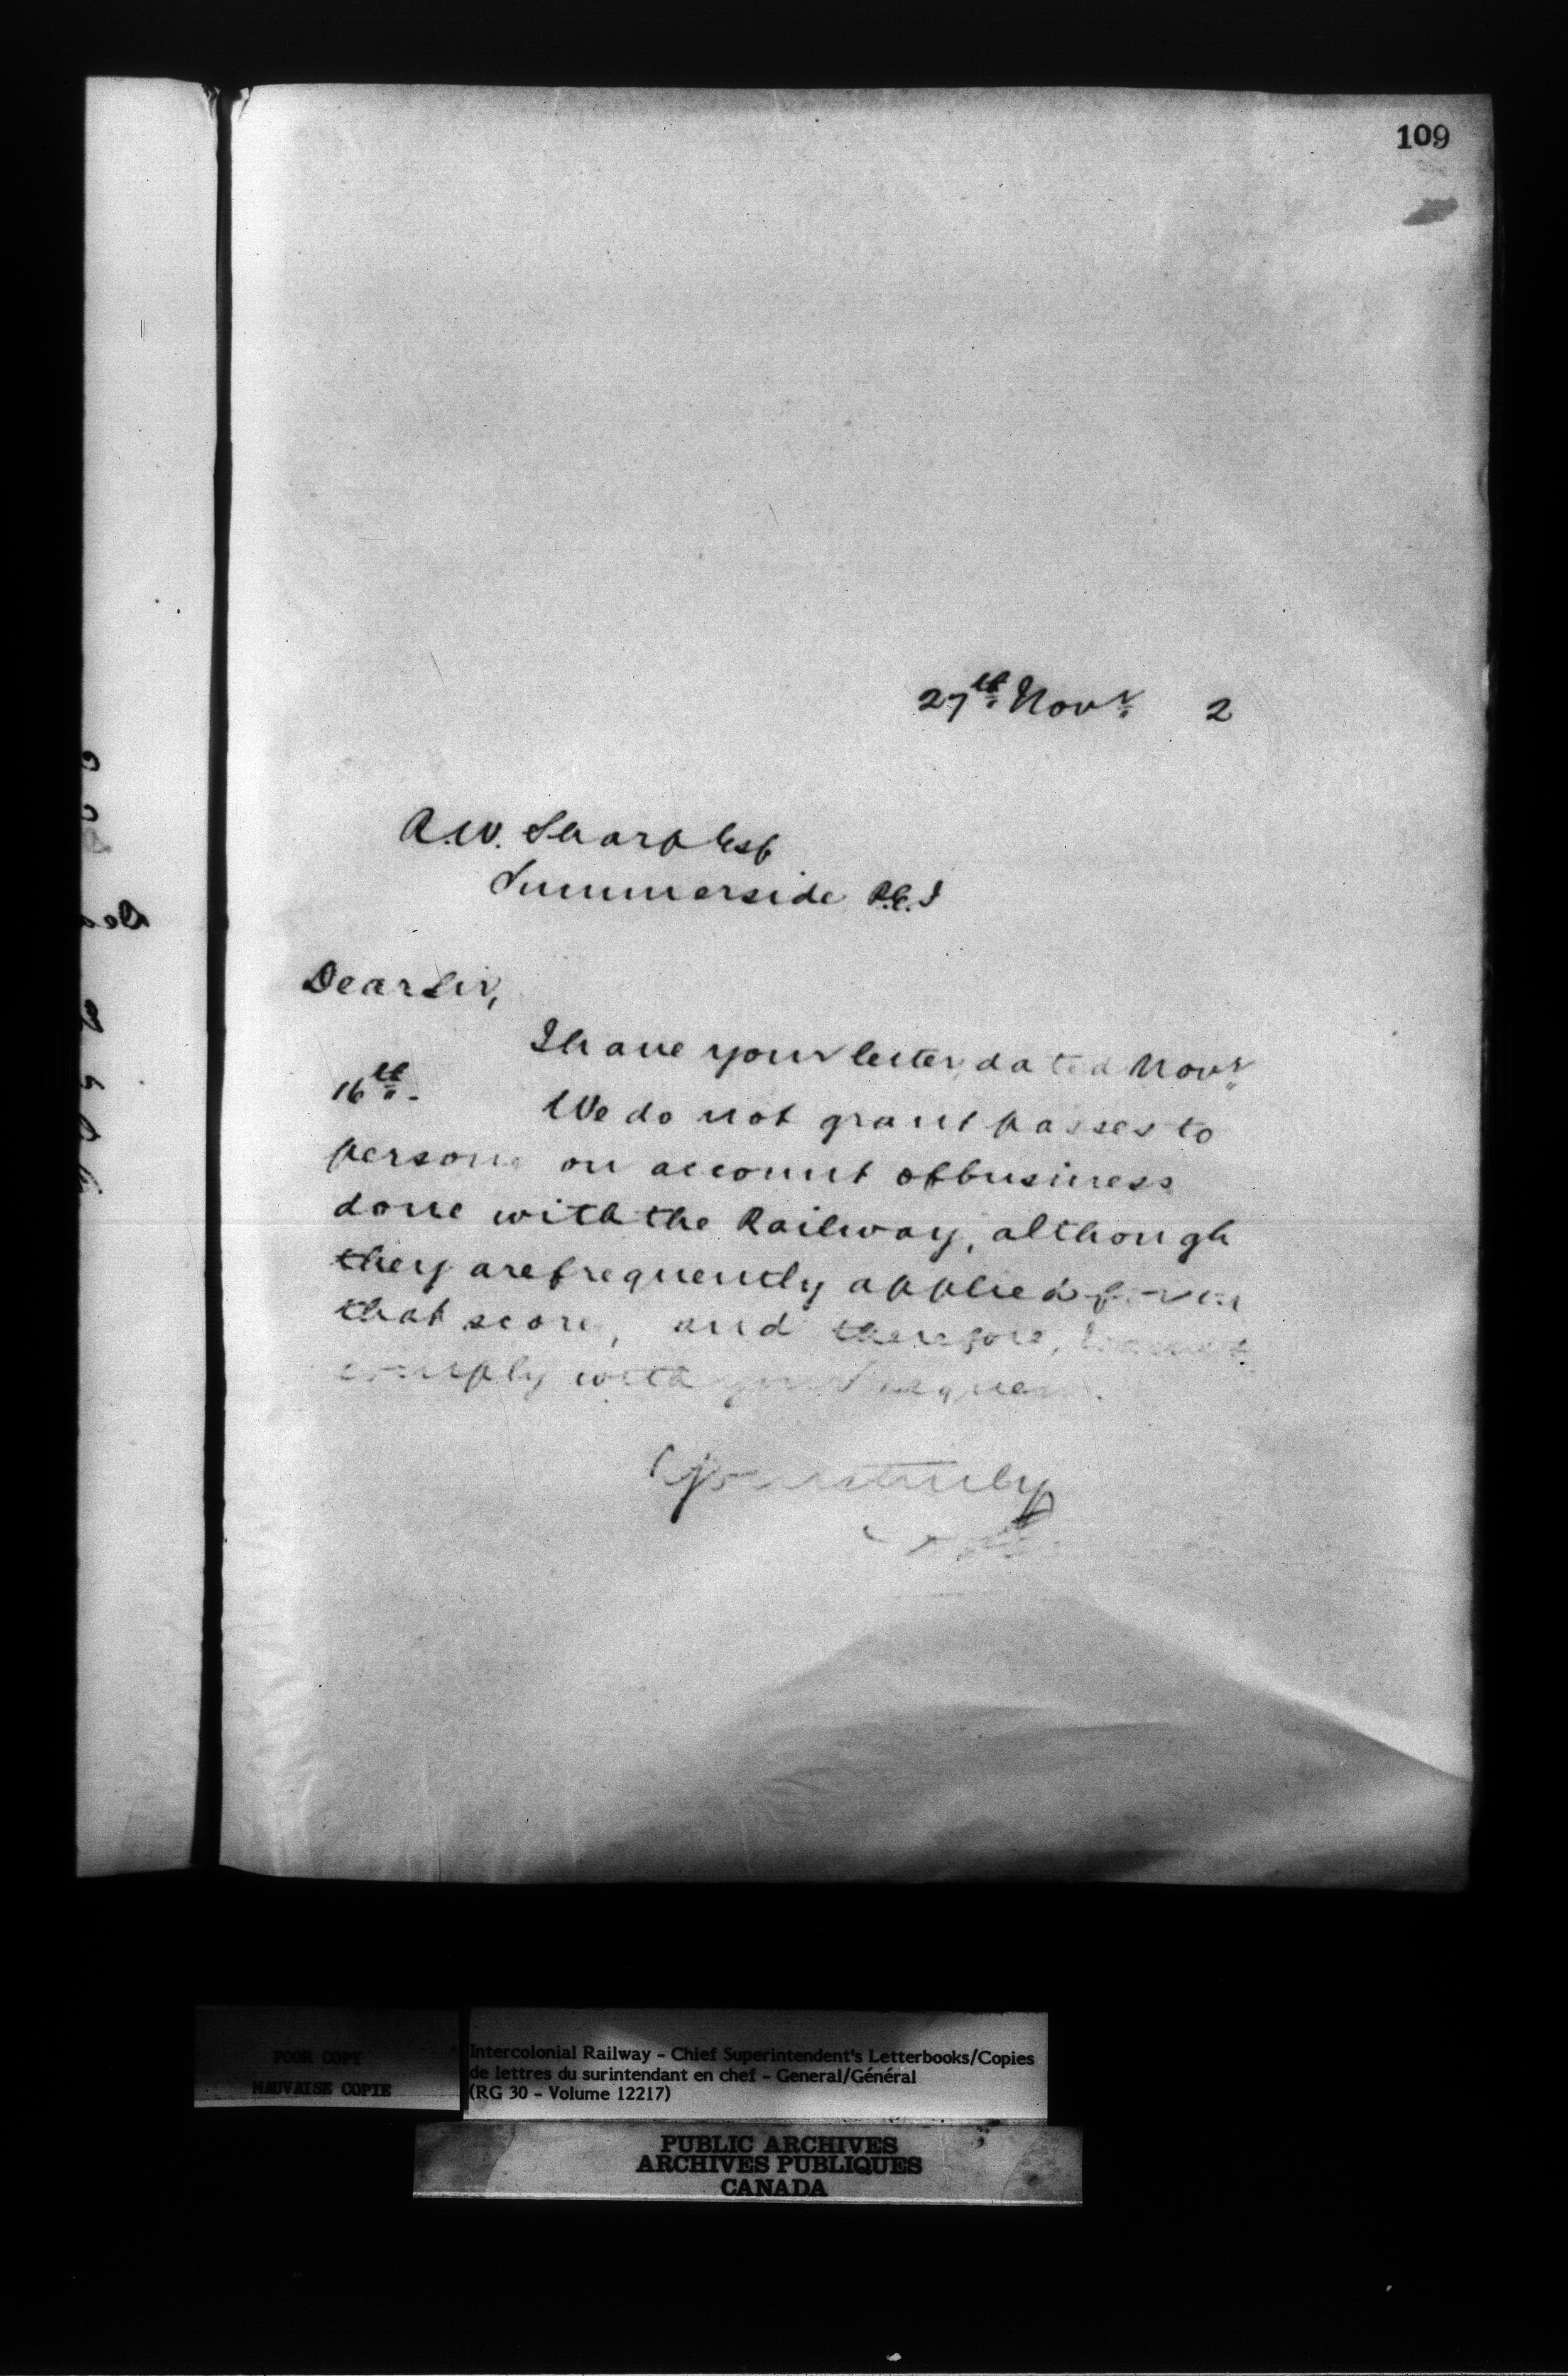 109
27th Novr 2
A.W. Sharp Esq
Summerside P.E.I
Dear Sir,
I have your letter, dated Novr
16th.
We do not grant passes to
persons on account of business
done with the Railway, although
they are frequently applied for on
that score, and therefore, I cannot
comply with your request.
Yours truly
POOR COPY
MAUVAISE COPIE
Intercolonial Railway - Chief Superintendent's Letterbooks/Copies
de lettres du surintendant en chef - General/Général
(RG 30 - Volume 12217)
PUBLIC ARCHIVES
ARCHIVES PUBLIQUES
CANADA